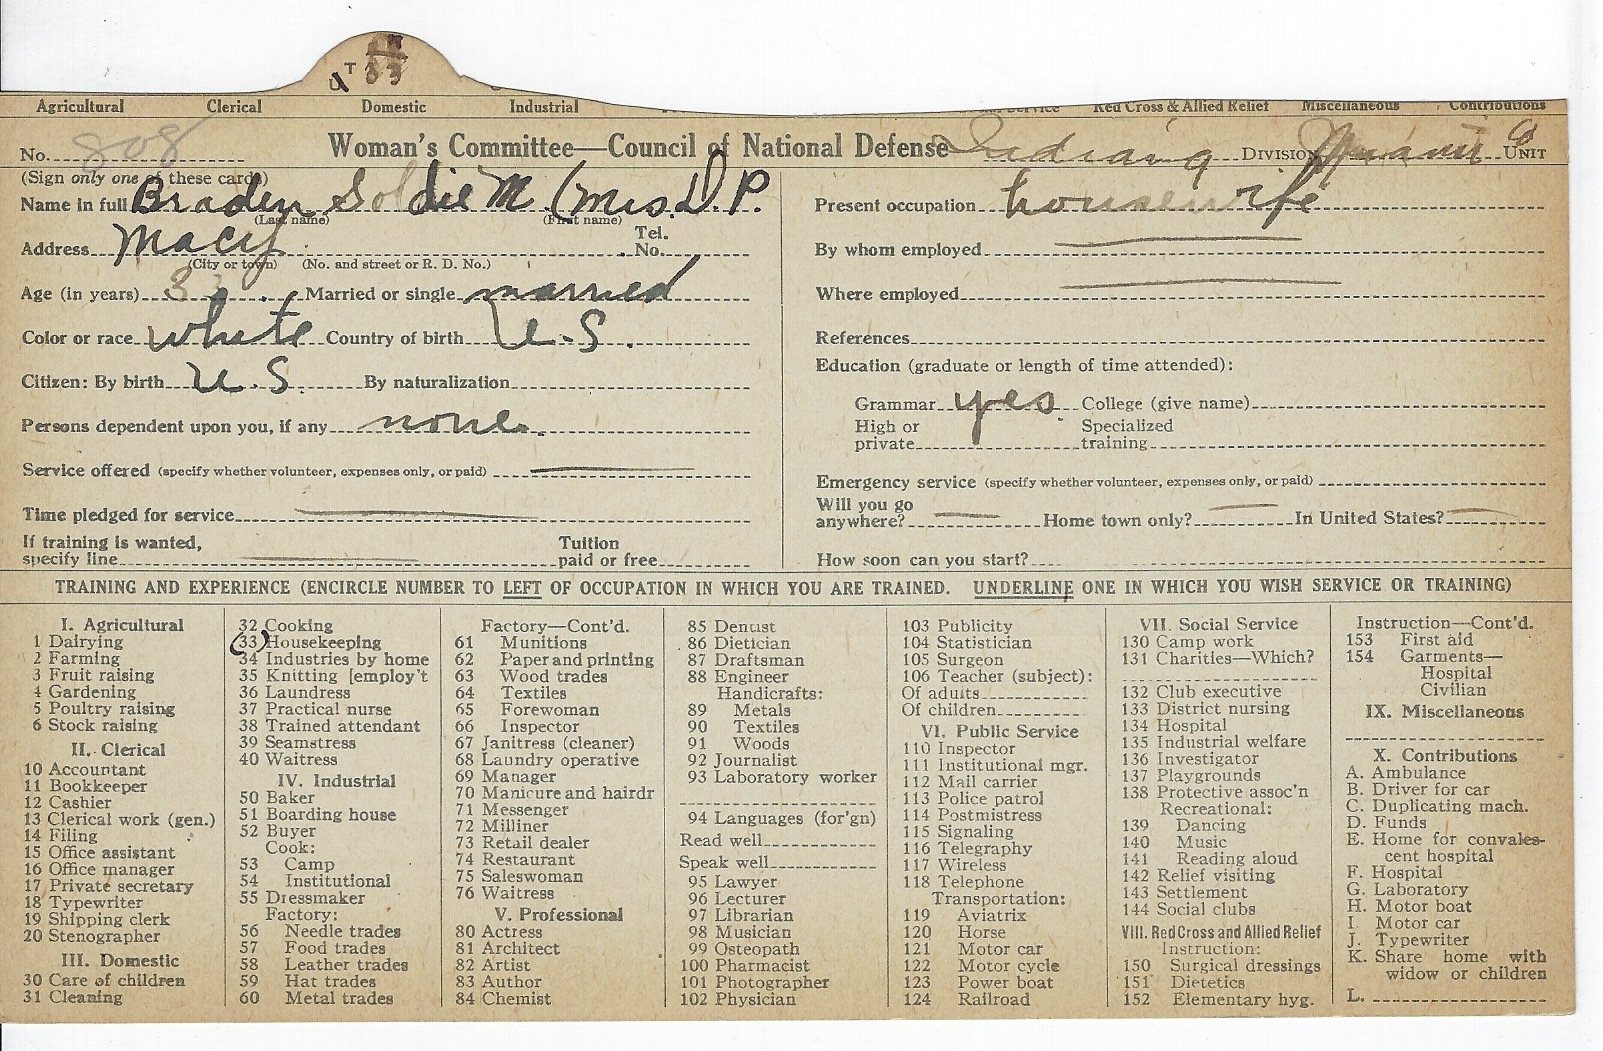 T 33
Agricultural Clerical Domestic Industrial Service Red Cross & Allied Relief Miscellaneous Contributions
No. 808 Woman's Committee—Council of National Defense Indiana DIVISION Miami Co UNIT
(Sign only one of these cards)
Name in full Braden Goldie M (Mrs. D. P.
(Last name) (First name)
Address Macy Tel. No.
(City or town) (No. and street or R. D. No.)
Age (in years) 33 Married or single married
Color or race white Country of birth U.S.
Citizen: By birth U.S. By naturalization
Persons dependent upon you, if any none.
Service offered (specify whether volunteer, expenses only, or paid)
Time pledged for service
If training is wanted, specify line Tuition paid or free
Present occupation housewife
By whom employed
Where employed
References
Education (graduate or length of time attended):
Grammar yes College (give name)
High or private Specialized training
Emergency service (specify whether volunteer, expenses only, or paid)
Will you go anywhere? Home town only? In United States?
How soon can you start?
TRAINING AND EXPERIENCE (ENCIRCLE NUMBER TO LEFT OF OCCUPATION IN WHICH YOU ARE TRAINED. UNDERLINE ONE IN WHICH YOU WISH SERVICE OR TRAINING)
I. Agricultural
1 Dairying
2 Farming
3 Fruit raising
4 Gardening
5 Poultry raising
6 Stock raising
II. Clerical
10 Accountant
11 Bookkeeper
12 Cashier
13 Clerical work (gen.)
14 Filing
15 Office assistant
16 Office manager
17 Private secretary
18 Typewriter
19 Shipping clerk
20 Stenographer
III. Domestic
30 Care of children
31 Cleaning
32 Cooking
(33) Housekeeping
34 Industries by home
35 Knitting [employ't
36 Laundress
37 Practical nurse
38 Trained attendant
39 Seamstress
40 Waitress
IV. Industrial
50 Baker
51 Boarding house
52 Buyer
Cook:
53 Camp
54 Institutional
55 Dressmaker
Factory:
56 Needle trades
57 Food trades
58 Leather trades
59 Hat trades
60 Metal trades
Factory—Cont'd.
61 Munitions
62 Paper and printing
63 Wood trades
64 Textiles
65 Forewoman
66 Inspector
67 Janitress (cleaner)
68 Laundry operative
69 Manager
70 Manicure and hairdr
71 Messenger
72 Milliner
73 Retail dealer
74 Restaurant
75 Saleswoman
76 Waitress
V. Professional
80 Actress
81 Architect
82 Artist
83 Author
84 Chemist
85 Dentist
86 Dietician
87 Draftsman
88 Engineer
Handicrafts:
89 Metals
90 Textiles
91 Woods
92 Journalist
93 Laboratory worker
94 Languages (for'gn)
Read well
Speak well
95 Lawyer
96 Lecturer
97 Librarian
98 Musician
99 Osteopath
100 Pharmacist
101 Photographer
102 Physician
103 Publicity
104 Statistician
105 Surgeon
106 Teacher (subject):
Of adults
Of children
VI. Public Service
110 Inspector
111 Institutional mgr.
112 Mail carrier
113 Police patrol
114 Postmistress
115 Signaling
116 Telegraphy
117 Wireless
118 Telephone
Transportation:
119 Aviatrix
120 Horse
121 Motor car
122 Motor cycle
123 Power boat
124 Railroad
VII. Social Service
130 Camp work
131 Charities—Which?
132 Club executive
133 District nursing
134 Hospital
135 Industrial welfare
136 Investigator
137 Playgrounds
138 Protective assoc'n
Recreational:
139 Dancing
140 Music
141 Reading aloud
142 Relief visiting
143 Settlement
144 Social clubs
VIII. Red Cross and Allied Relief
Instruction:
150 Surgical dressings
151 Dietetics
152 Elementary hyg.
Instruction—Cont'd.
153 First aid
154 Garments—
Hospital
Civilian
IX. Miscellaneous
X. Contributions
A. Ambulance
B. Driver for car
C. Duplicating mach.
D. Funds
E. Home for convales-
cent hospital
F. Hospital
G. Laboratory
H. Motor boat
I. Motor car
J. Typewriter
K. Share home with
widow or children
L.